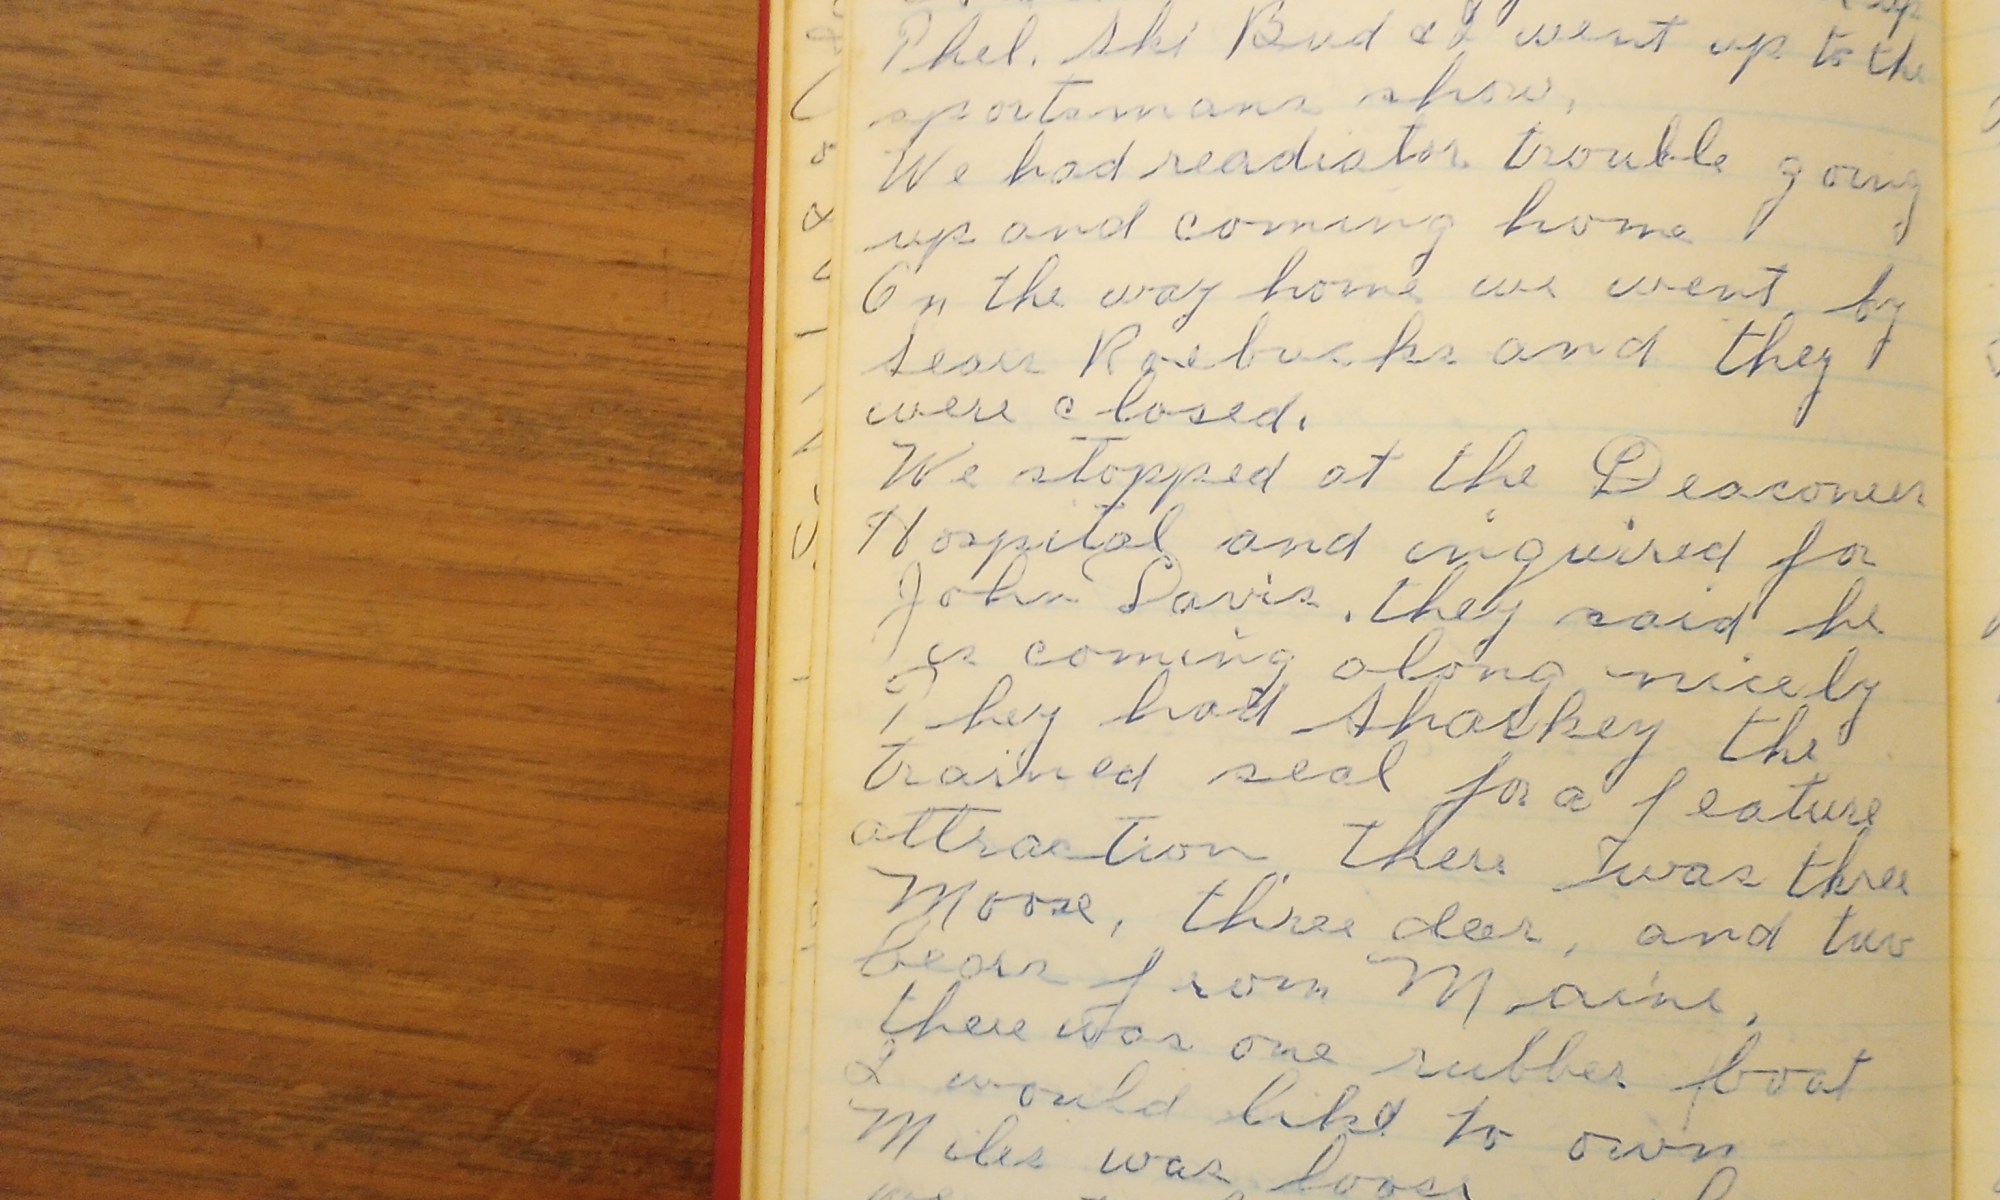 Phel. Ski Bud & I went up to the
sportsmans show,
We had readiator trouble going
up and coming home
On the way home we went by
Sears Roebucks and they
were closed.
We stopped at the Deacones
Hospital and inquired for
John Davis. they said he
is coming along nicely
They had Sharkey the
trained seal for a feature
attraction there was three
Moose, three deer, and two
bears from Maine,
there was one rubber boat
I would like to own
Miles was loose
we